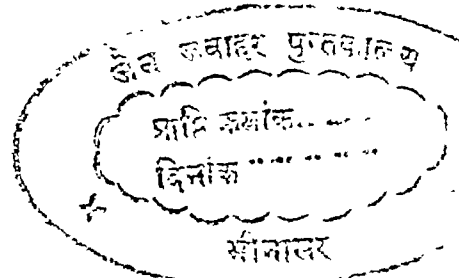 जैन जवाहर पुस्तकालय
प्राप्ति क्रमांक.........
दिनांक ..............
भीनासर